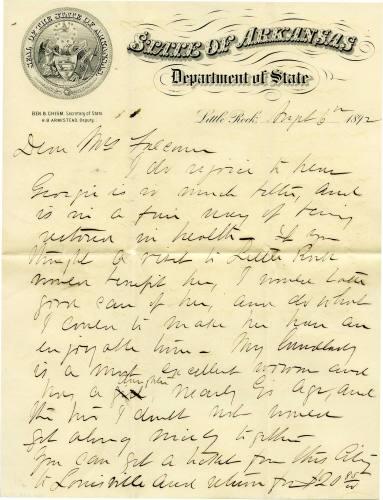 SEAL OF THE STATE OF ARKANSAS
STATE OF ARKANSAS
Department of State
BEN B. CHISM, Secretary of State
H. B. ARMISTEAD, Deputy.
Little Rock, Sept 6th 1892
Dear Mrs
I do rejoice to hear
Georgie is so much better, and
is in a fair way of being
restored in health – If you
thought a visit to Little Rock
would benefit her, I would take
good care of her, and do what
I could to make her have an
enjoyable time – My landlady
is a most excellent woman and
has a daughter nearly G's Age, and
the two I doubt not would
get along nicely together
You can get a ticket from this City
to Louisville and return for $20